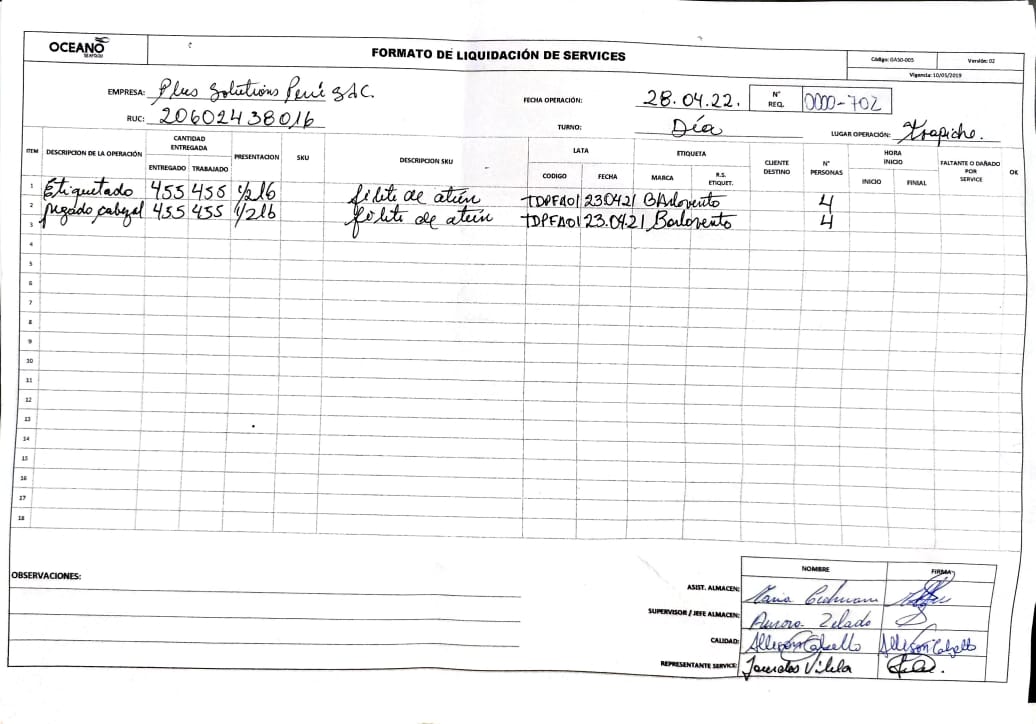 OCEANO
SEAFOOD
FORMATO DE LIQUIDACIÓN DE SERVICES
Código: OASO-005 Versión: 02
Vigencia: 10/05/2019
EMPRESA: Plus Solutions Perú SAC.
FECHA OPERACIÓN: 28.04.22.
N° REQ. 0000-702
RUC: 20602438016
TURNO: Día
LUGAR OPERACIÓN: Trapiche.
ITEM DESCRIPCION DE LA OPERACIÓN CANTIDAD ENTREGADA PRESENTACION SKU DESCRIPCION SKU LATA ETIQUETA CLIENTE DESTINO N° PERSONAS HORA INICIO FALTANTE O DAÑADO POR SERVICE OK
ENTREGADO TRABAJADO CODIGO FECHA MARCA R.S. ETIQUET. INICIO FINIAL
1 Etiquetado 455 455 1/2 lb filete de atún TDPFA01 23.04.21 Barlovento 4
2 pegado cabezal 455 455 1/2 lb filete de atún TDPFA01 23.04.21 Barlovento 4
3
4
5
6
7
8
9
10
11
12
13
14
15
16
17
18
OBSERVACIONES:
NOMBRE FIRMA
ASIST. ALMACEN: Maria
SUPERVISOR / JEFE ALMACEN: Aurora Zelado
CALIDAD: Allison
REPRESENTANTE SERVICE: Vilela